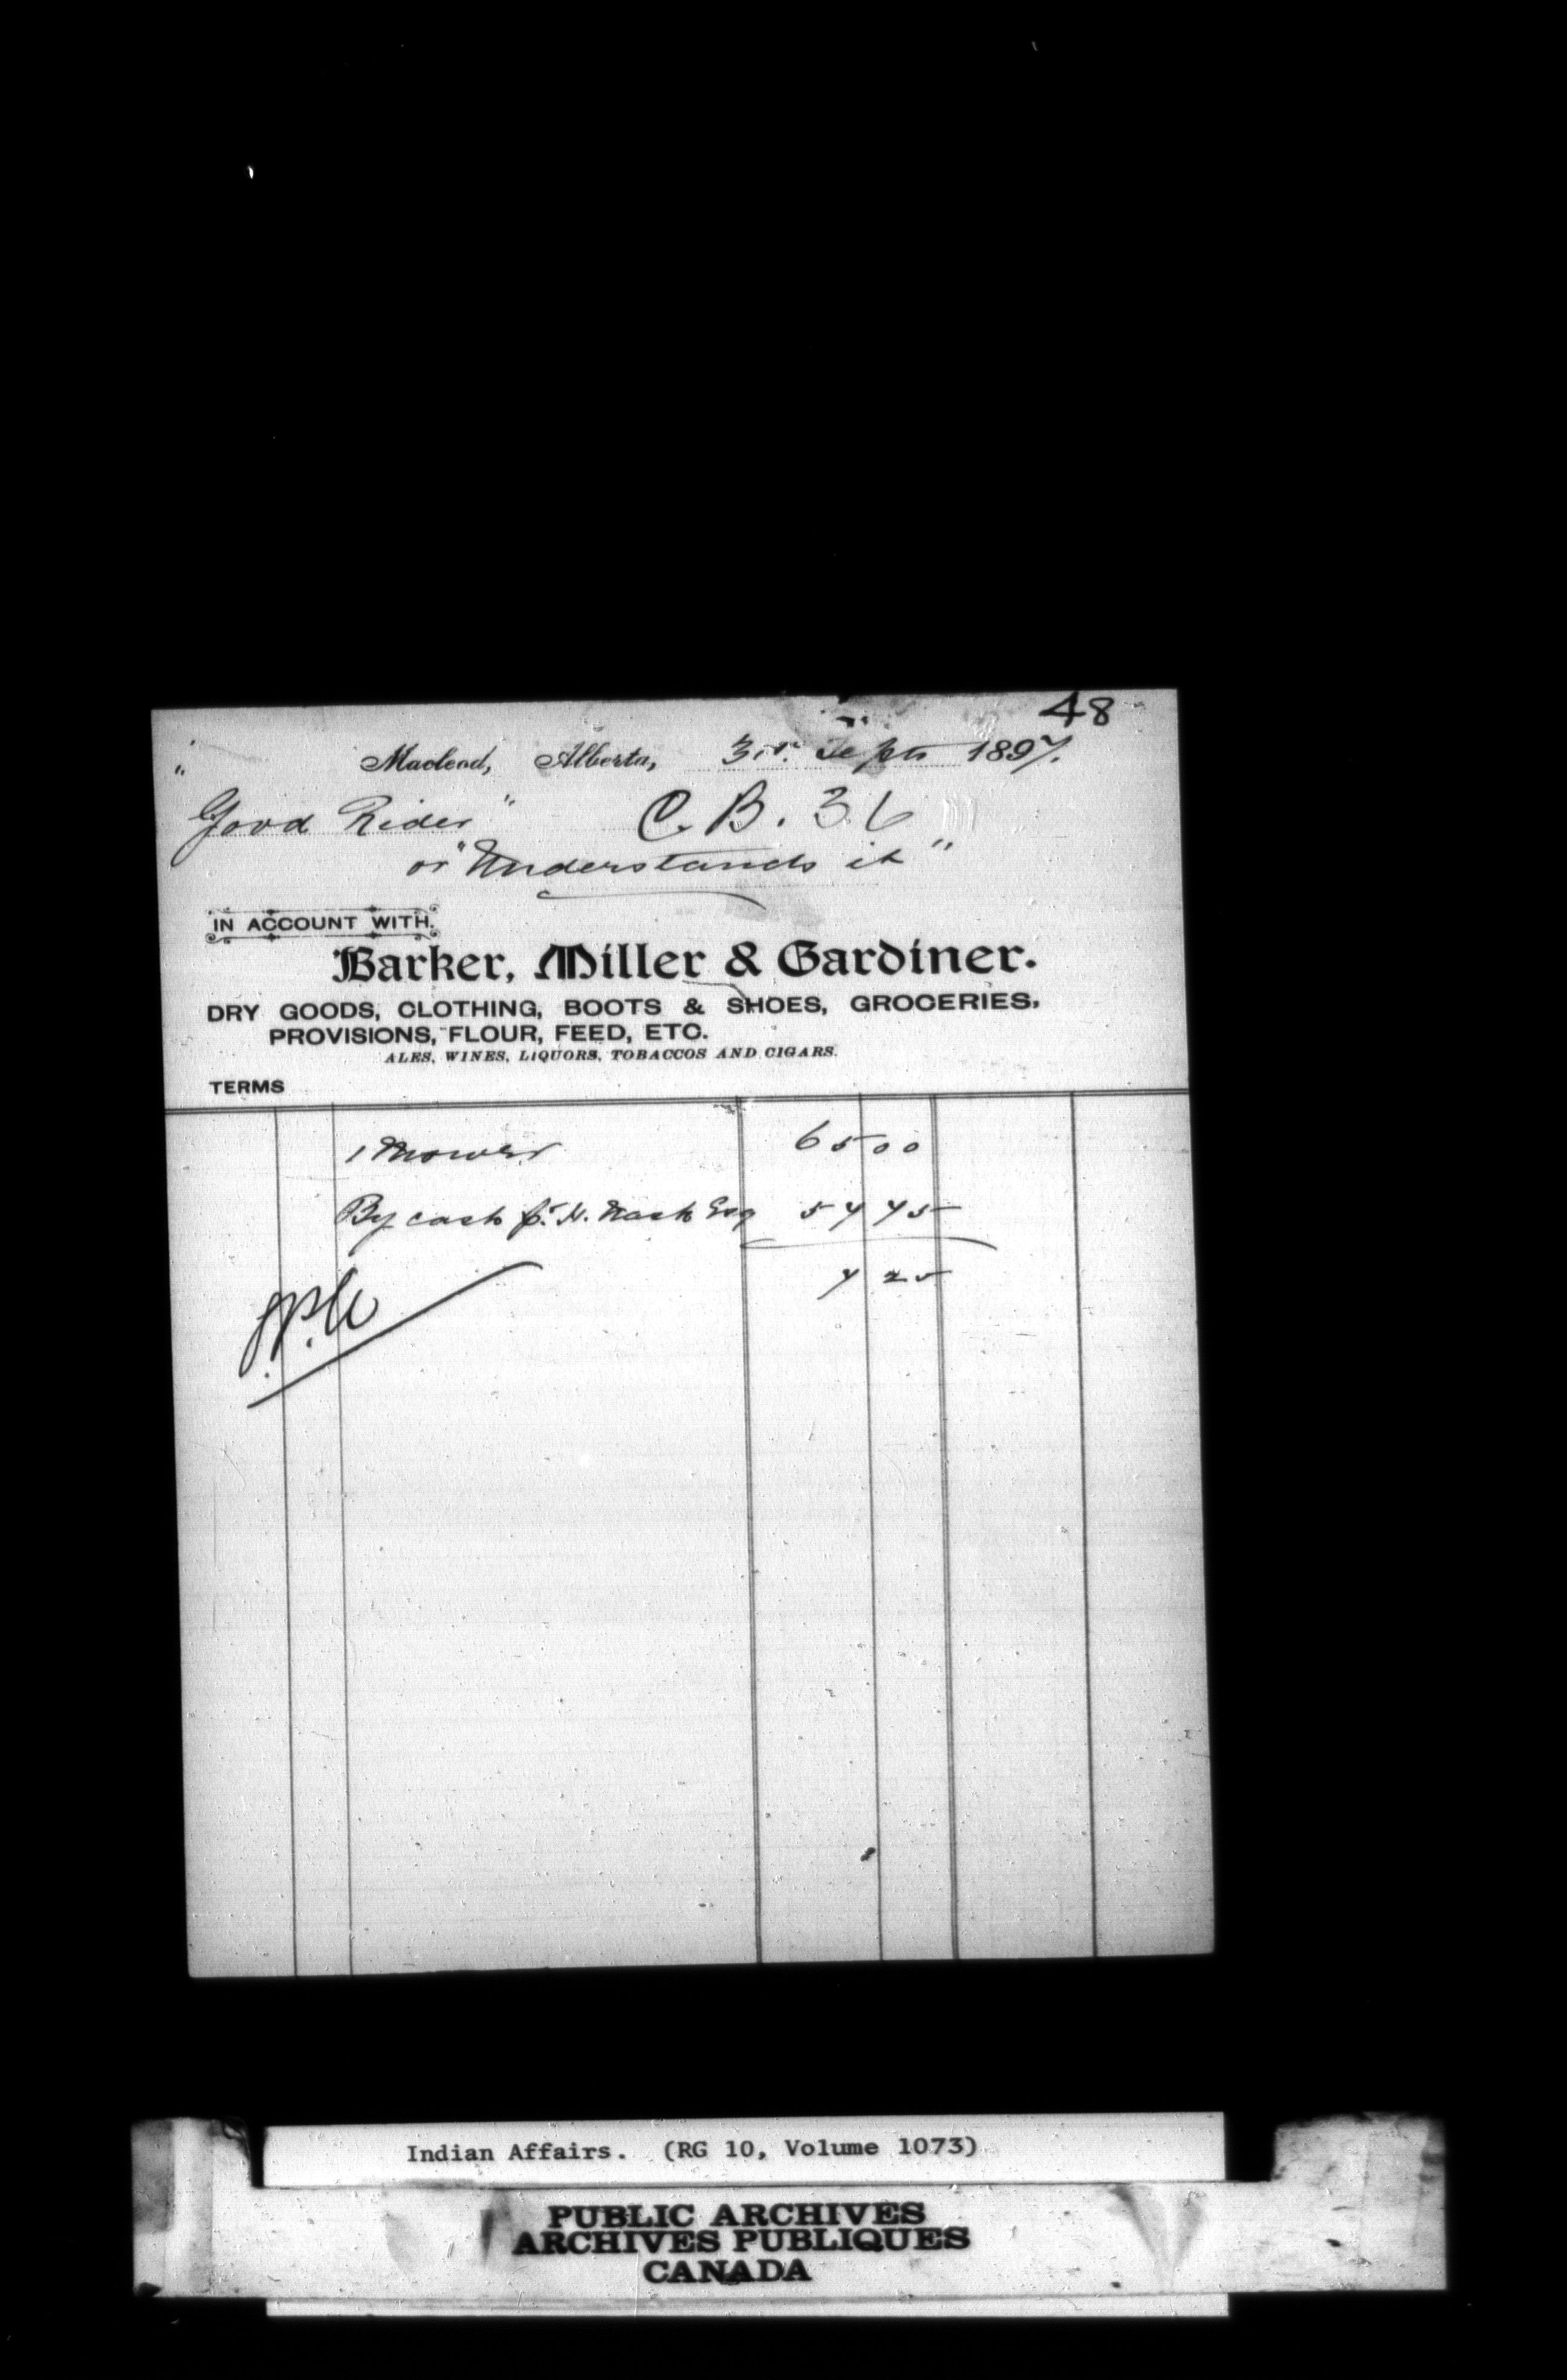 48
Macleod, Alberta, Sept 1897.
"Good Rider" C. B. 36
or "Understands it"
IN ACCOUNT WITH.
Barker, Miller & Gardiner.
DRY GOODS, CLOTHING, BOOTS & SHOES, GROCERIES,
PROVISIONS, FLOUR, FEED, ETC.
ALES, WINES, LIQUORS, TOBACCOS AND CIGARS.
TERMS
1 Mower 65 00
By cash H. Nash Esq 57 75
7 25
Indian Affairs. (RG 10, Volume 1073)
PUBLIC ARCHIVES
ARCHIVES PUBLIQUES
CANADA